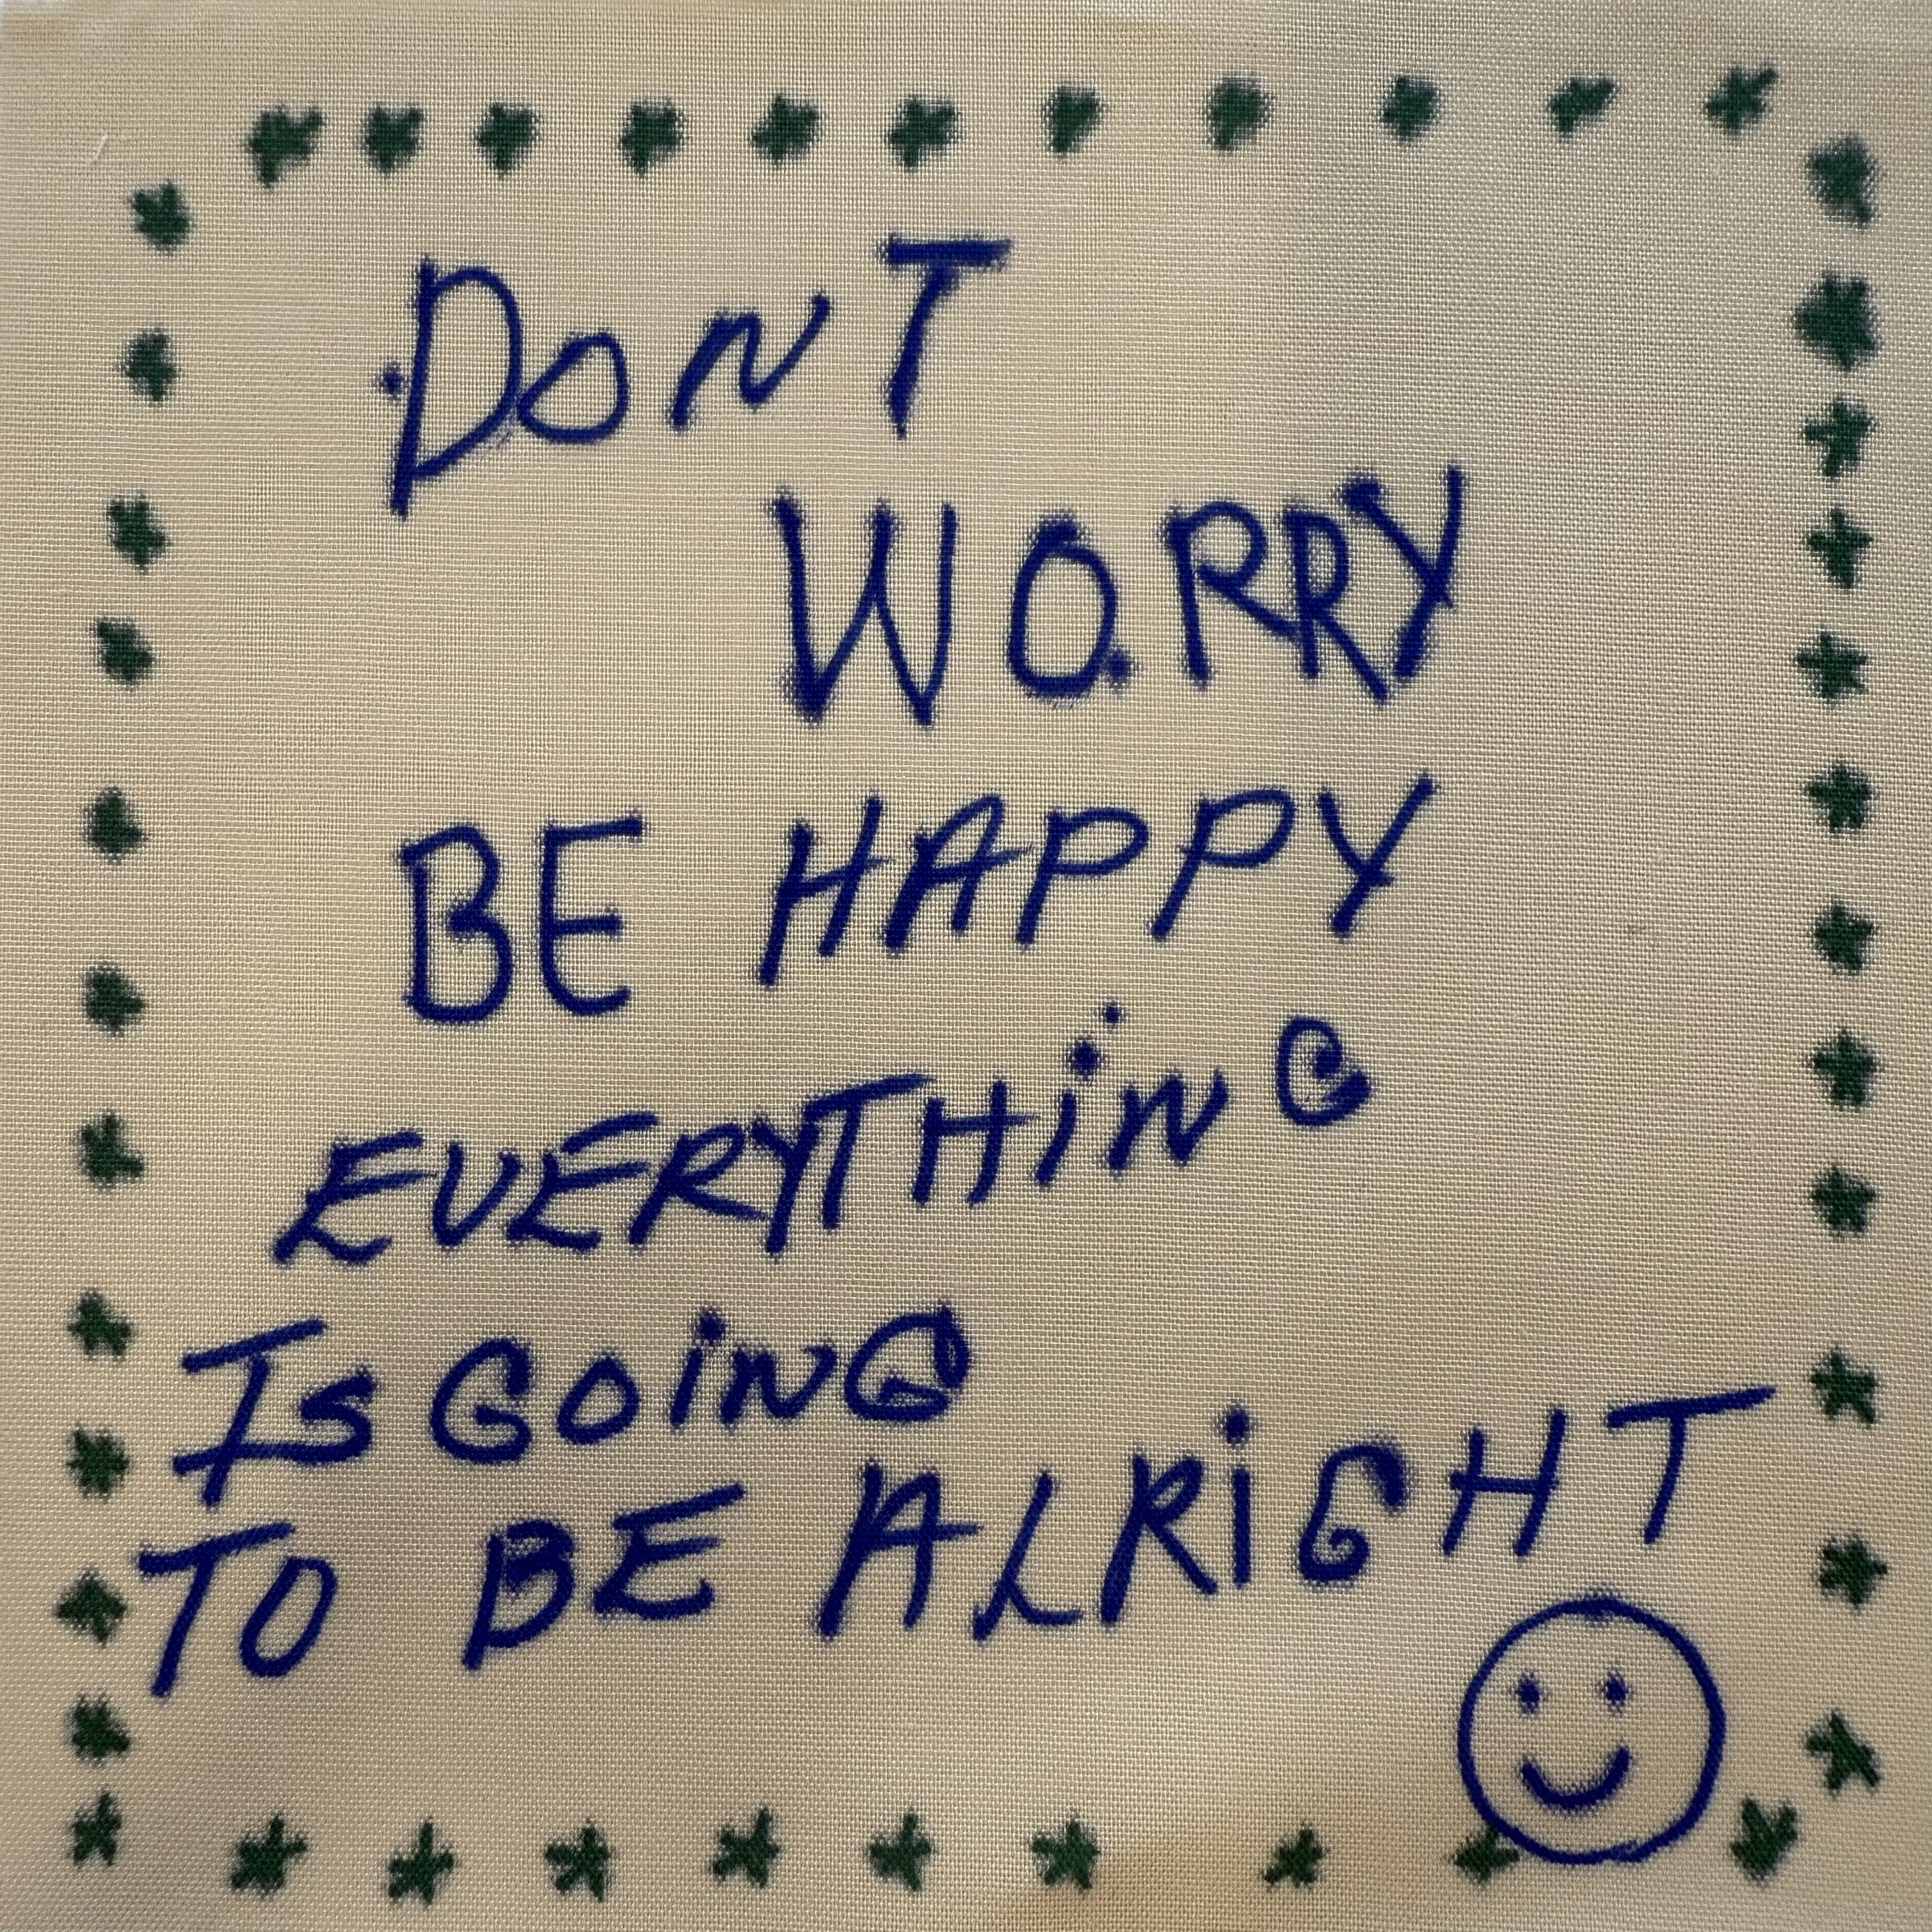 DonT
WORRY
BE HAPPY
EVERYTHiNG
Is GOiNG
TO BE ALRiGHT